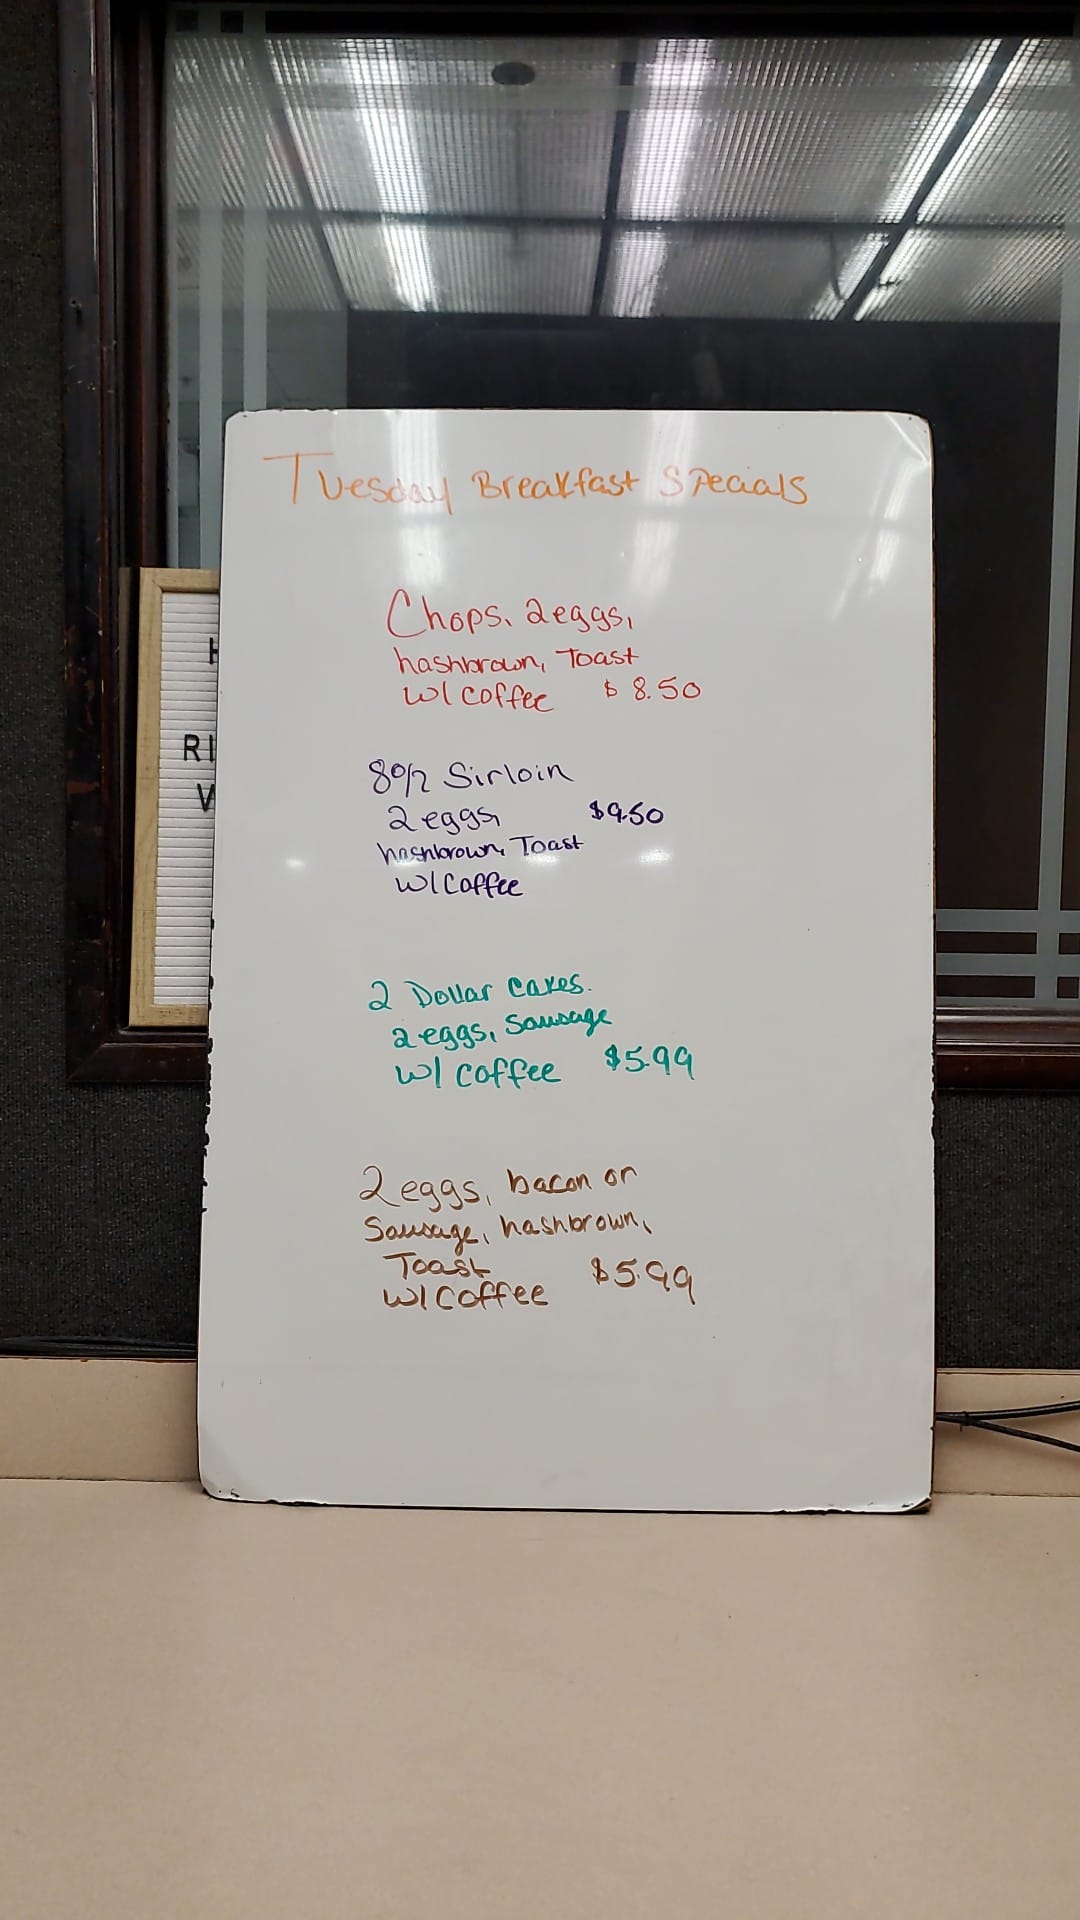 Tuesday Breakfast Specials
Chops, 2 eggs,
hashbrown, Toast
w/ coffee $8.50
8oz Sirloin
2 eggs, $9.50
hashbrown, Toast
w/ Coffee
2 Dollar Cakes.
2 eggs, Sausage
w/ coffee $5.99
2 eggs, bacon or
Sausage, hashbrown,
Toast
w/ Coffee $5.99
H
RI
V